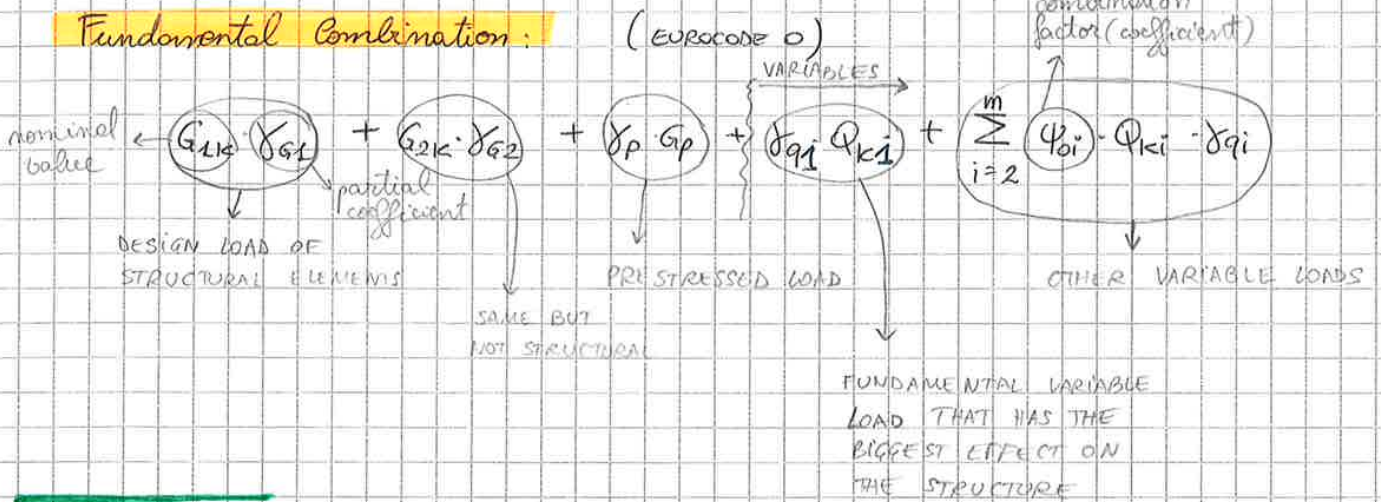 Fundamental Combination: (EUROCODE 0)
combination
factor (coefficient)
VARIABLES
nominal
value
G1K · γG1 + G2K · γG2 + γP · GP + γq1 QK1 + m∑i=2 ψ0i · QKi · γqi
partial
coefficient
DESIGN LOAD OF
STRUCTURAL ELEMENTS
PRESTRESSED LOAD
OTHER VARIABLE LOADS
SAME BUT
NOT STRUCTURAL
FUNDAMENTAL VARIABLE
LOAD THAT HAS THE
BIGGEST EFFECT ON
THE STRUCTURE